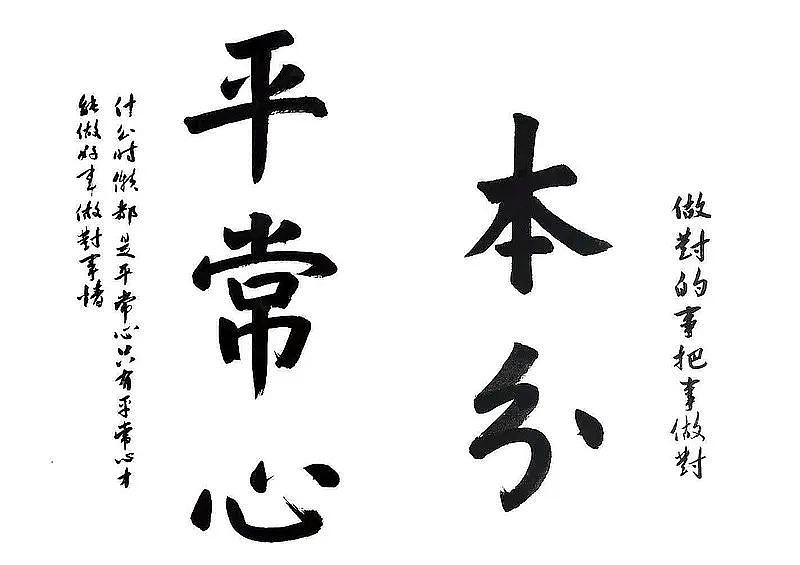 做對的事把事做對
本分
平常心
什么时候都是平常心只有平常心才
能做好事做對事情